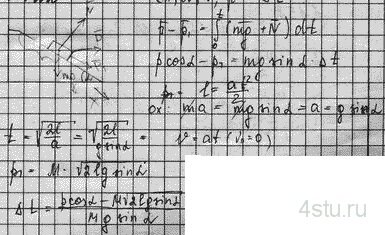 N
p̄ - p̄₁ = ∫₀ᵗ (mḡ + N̄) dt
p cosα - p₁ = mg sinα · Δt
p₁ = l = at²/2
ox: ma = mg sinα = a = g sinα
t = √(2l/a) = √(2l/(g sinα)) = v = at (v₀ = 0)
p₁ = M · √(2lg sinα)
Δt = (p cosα - M√(2lg sinα))/(Mg sinα)
4stu.ru